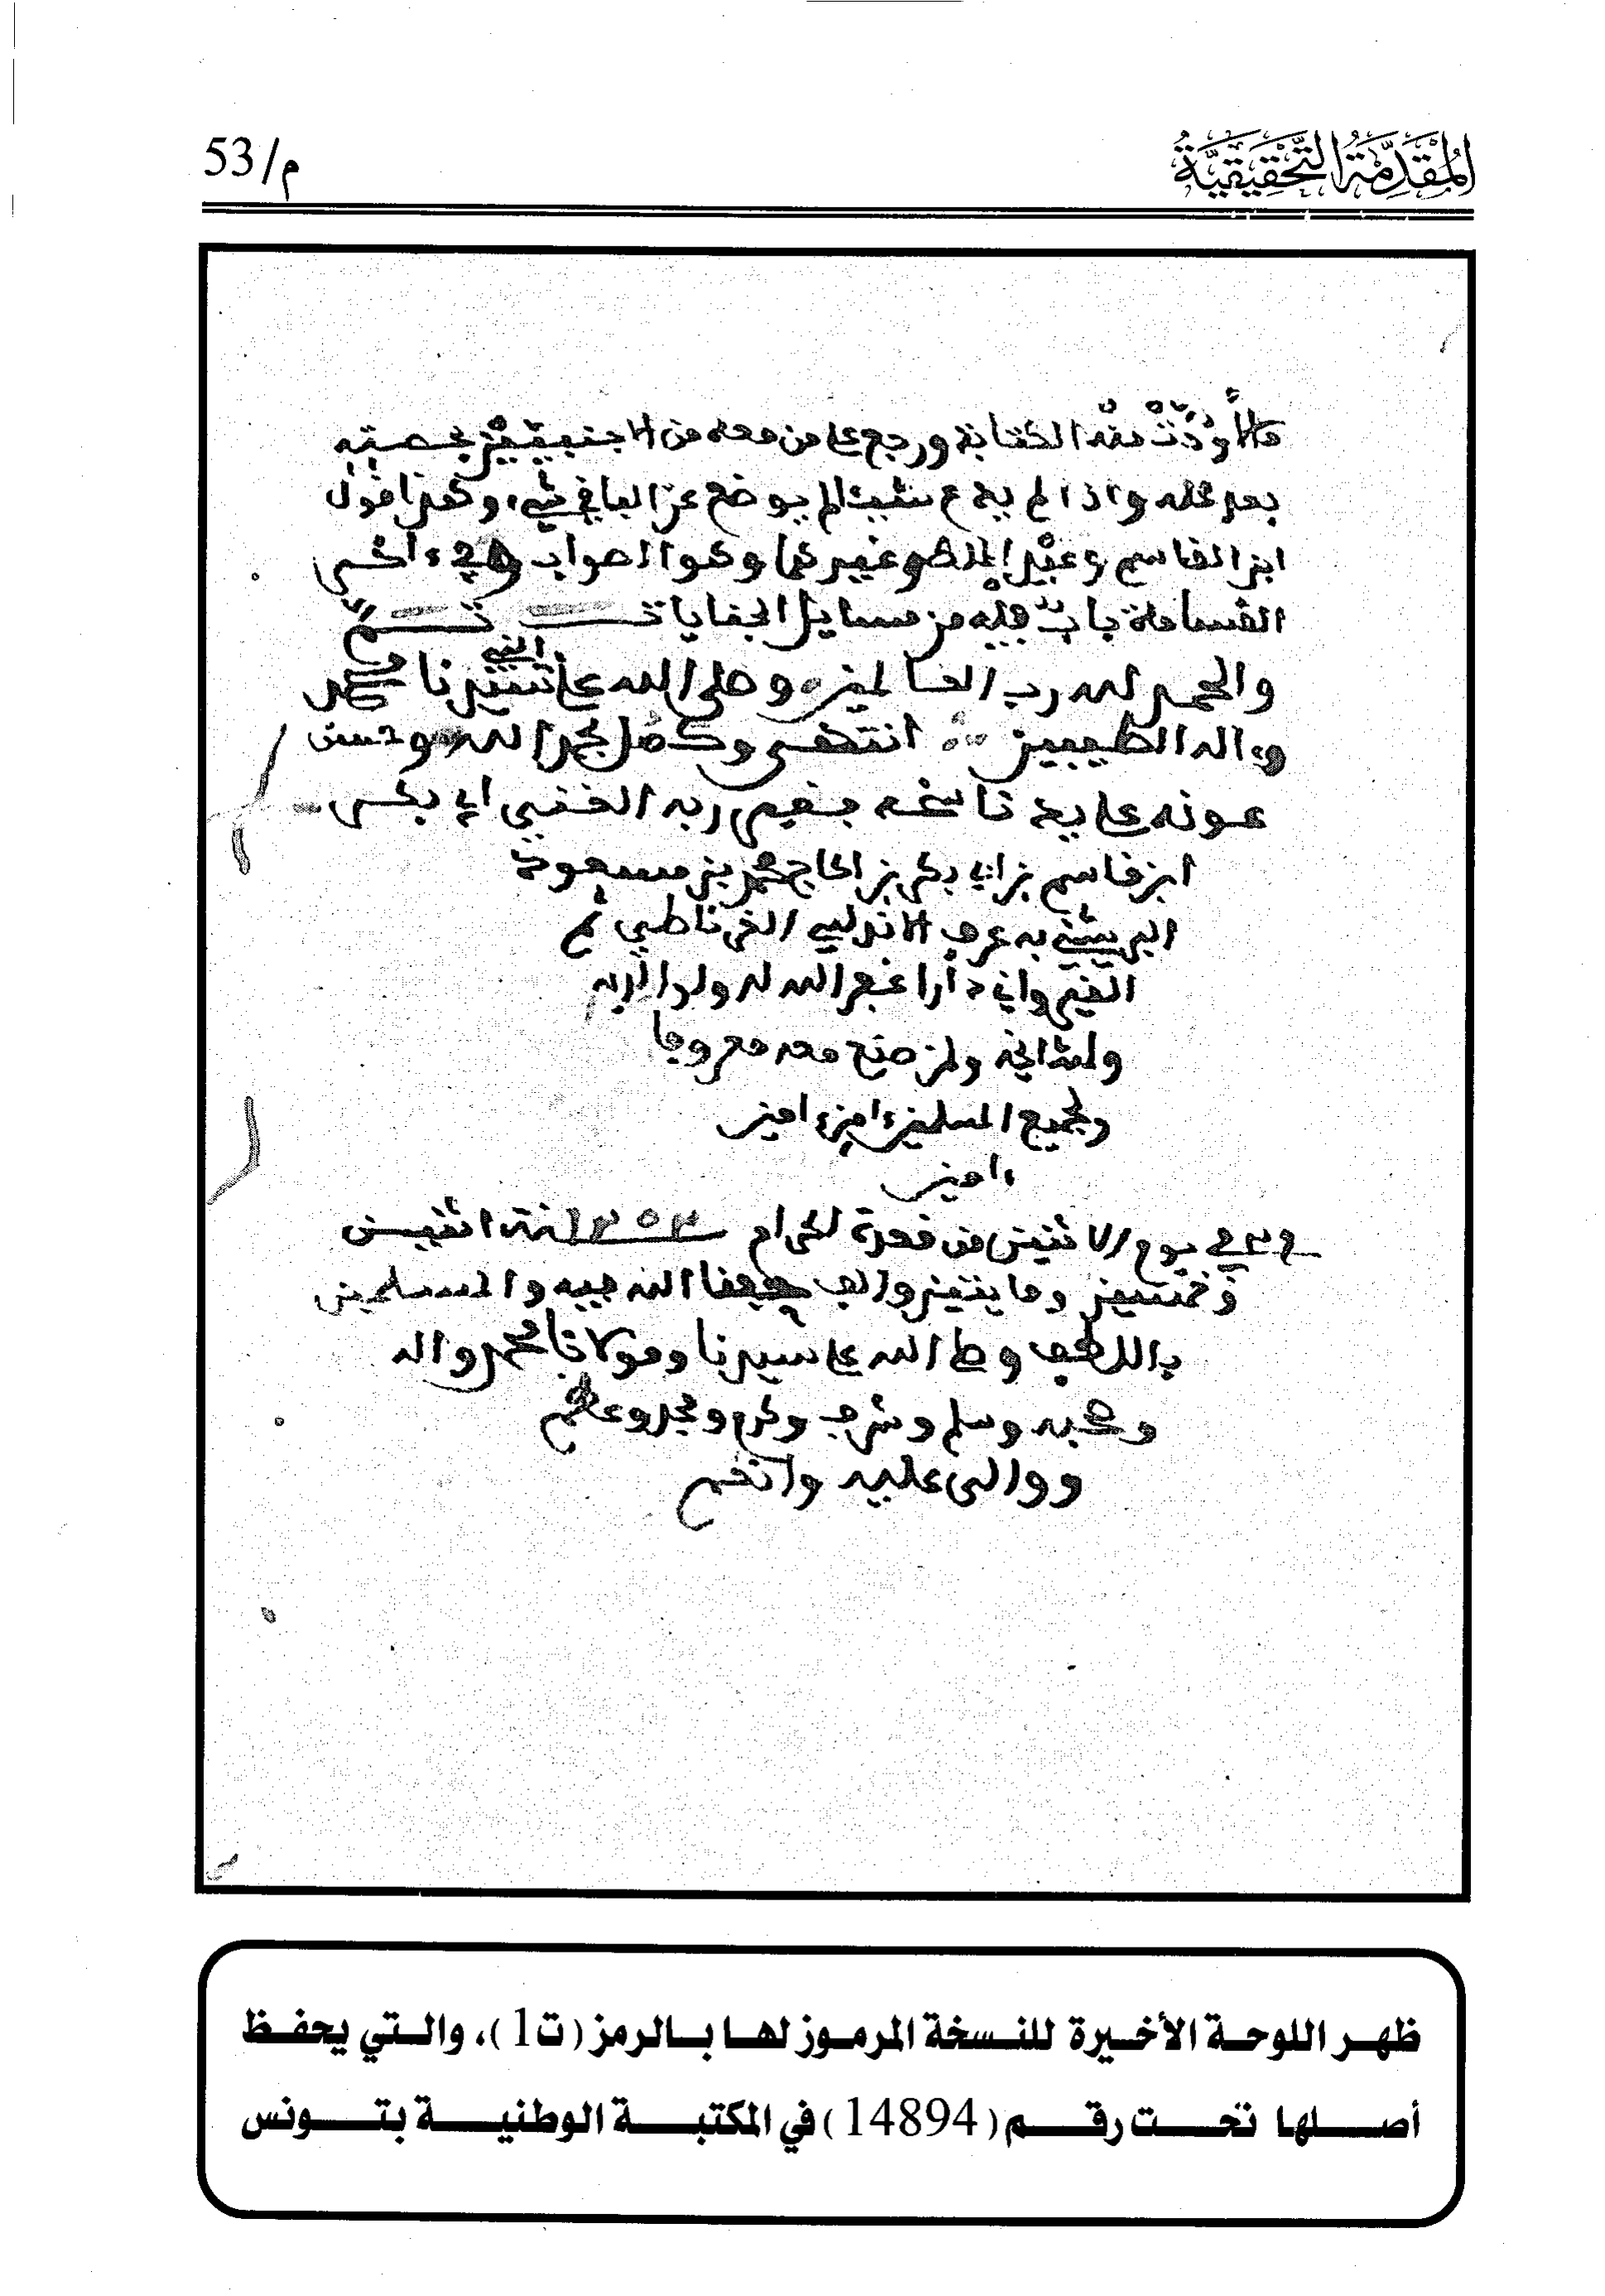 المُقَدِّمَةُ التَّحْقِيقِيَّةُ
م/53
منه الكتابة ورجع على من معه من الاجنبيين بحصته
بعد عتقه واذا لم يدع شيئا لم يرجع عن الباقي شيء وهذا قول
ابن القاسم وعبد الملك وغيرهما وهو الصواب
القسامة باب فيه من مسايل الجنايات تـــم
والحمد لله رب العالمين وصلى الله على سيدنا محمد
النبي
وءاله الطيبين انتهى وكمل بحمد الله وحسن
عونه على يد ناسخه فقير ربه الغني ابي بكر
ابن قاسم بن ابي بكر بن الحاج محمد بن مسعود
به عرف الاندلسي الغرناطي ثم
القيرواني دارا غفر الله له ولوالديه
ولمشايخه ولمن صنع معه معروفا
ولجميع المسلمين ءامين ءامين
ءامين
في يوم الاثنين من قعدة الحرام سنة اثنين
وخمسين ومايتين والف الله فيه والمسلمين
باللطف وصلى الله على سيدنا ومولانا محمد واله
وصحبه وسلم وشرف وكرم ومجد وعظم
ووالى عليه وانعم
ظهر اللوحة الأخيرة للنسخة المرموز لها بالرمز (ت1)، والتي يحفظ
أصلها تحت رقم (14894) في المكتبة الوطنية بتونس